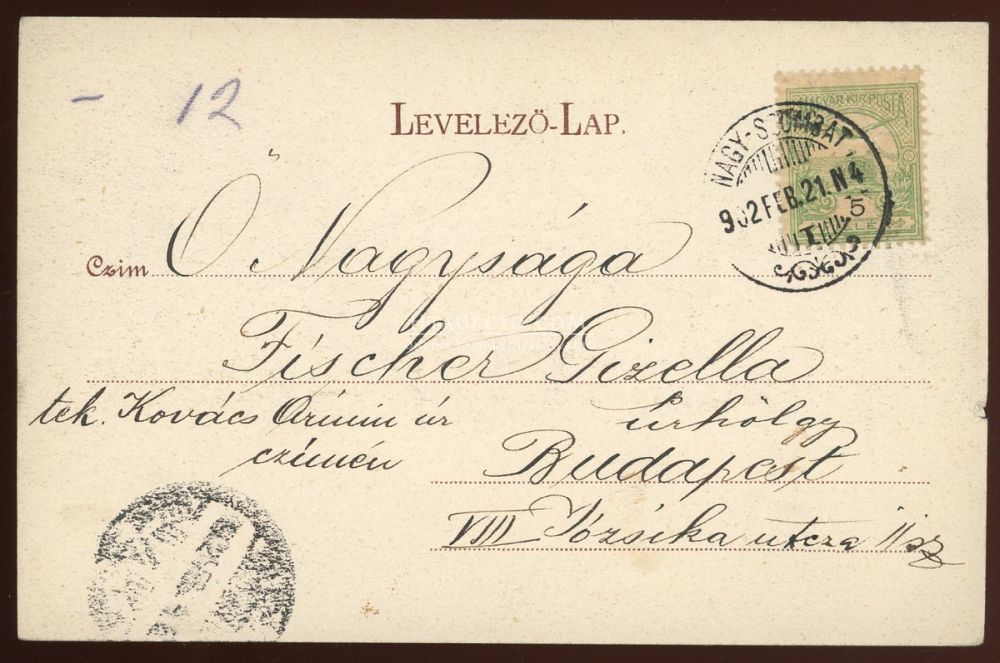 - 12
LEVELEZŐ-LAP.
MAGYAR KIR. POSTA
NAGY-SZOMBAT
902 FEB. 21. N4
5
Czim Ő Nagysága
Fischer Gizella
tek. Kovács Ármin úr úrhölgy
czímén Budapest
VIII Józsika utcza 11 sz